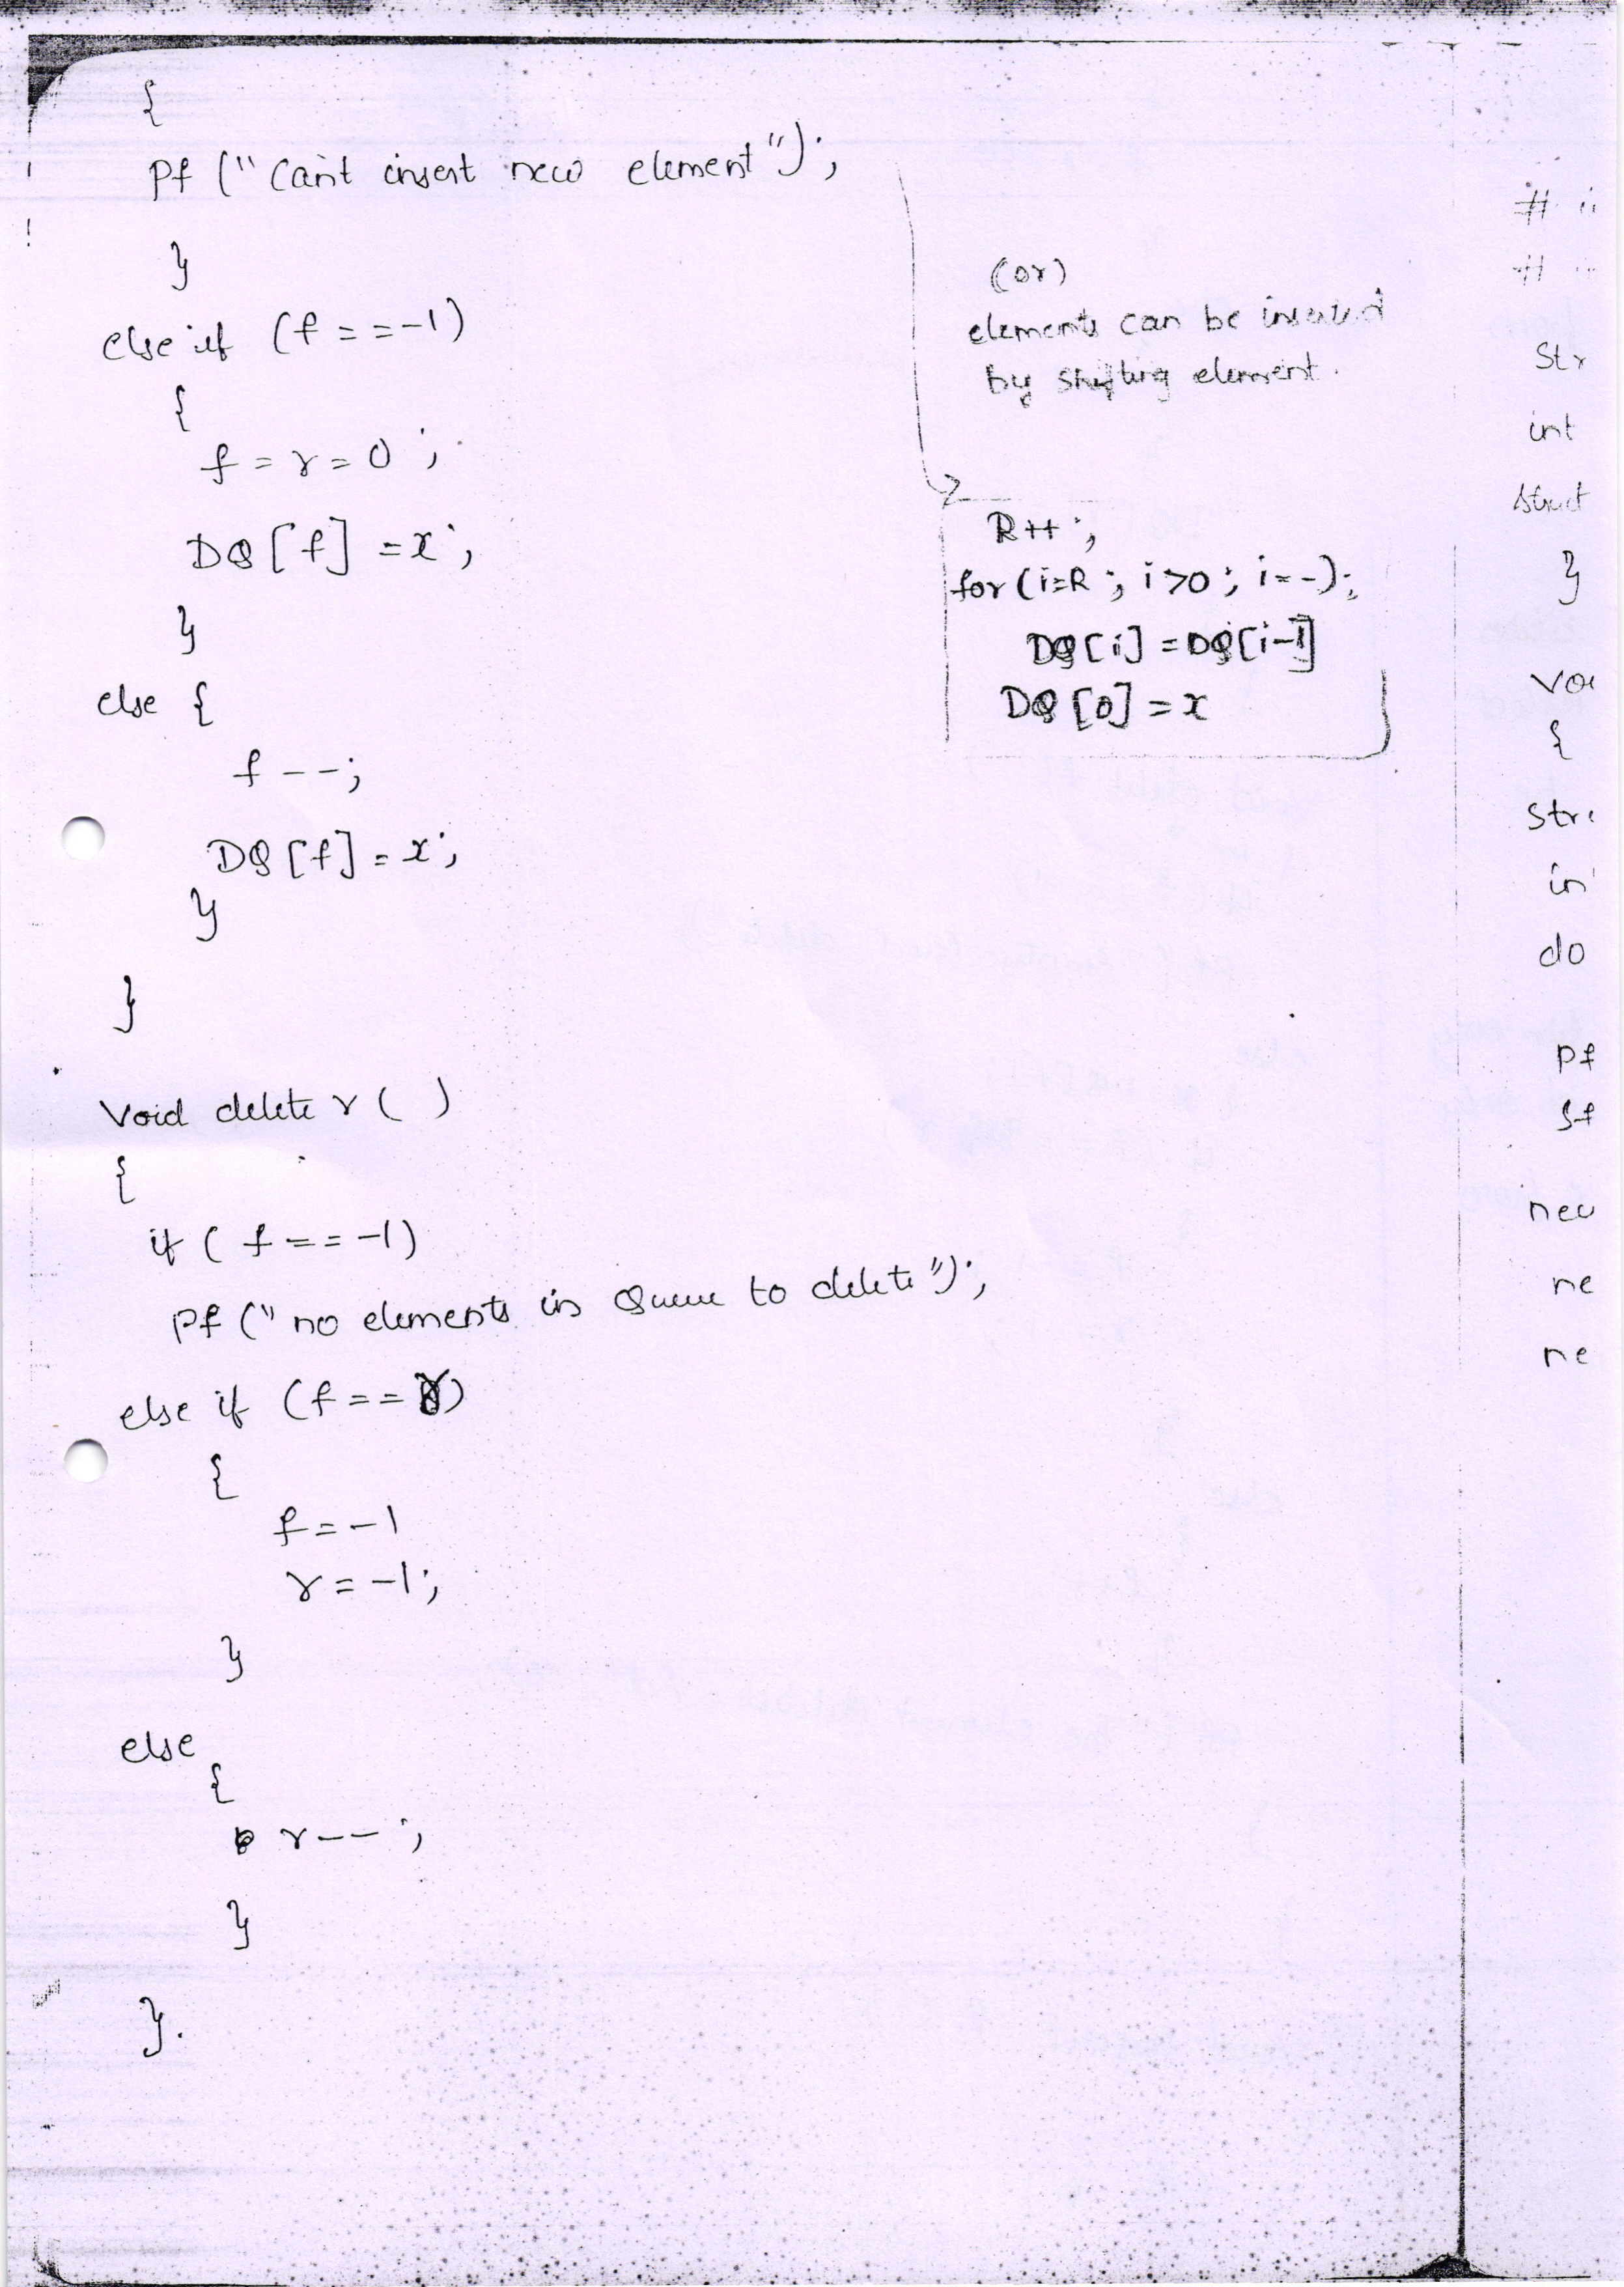 {
pf ("Can't insert new element");
}
else if (f==-1)
{
f=r=0;
DQ[f]=x;
}
else {
f--;
DQ[f]=x;
}
}
(or)
elements can be inserted
by shifting element.
R++;
for(i=R; i>0; i--);
DQ[i]=DQ[i-1]
DQ[0]=x
void delete r( )
{
if (f==-1)
pf("no elements in Queue to delete");
else if (f==r)
{
f=-1
r=-1;
}
else
{
r--;
}
}.
#
#
Str
int
struct
}
{
do
pf
sf
ne
ne